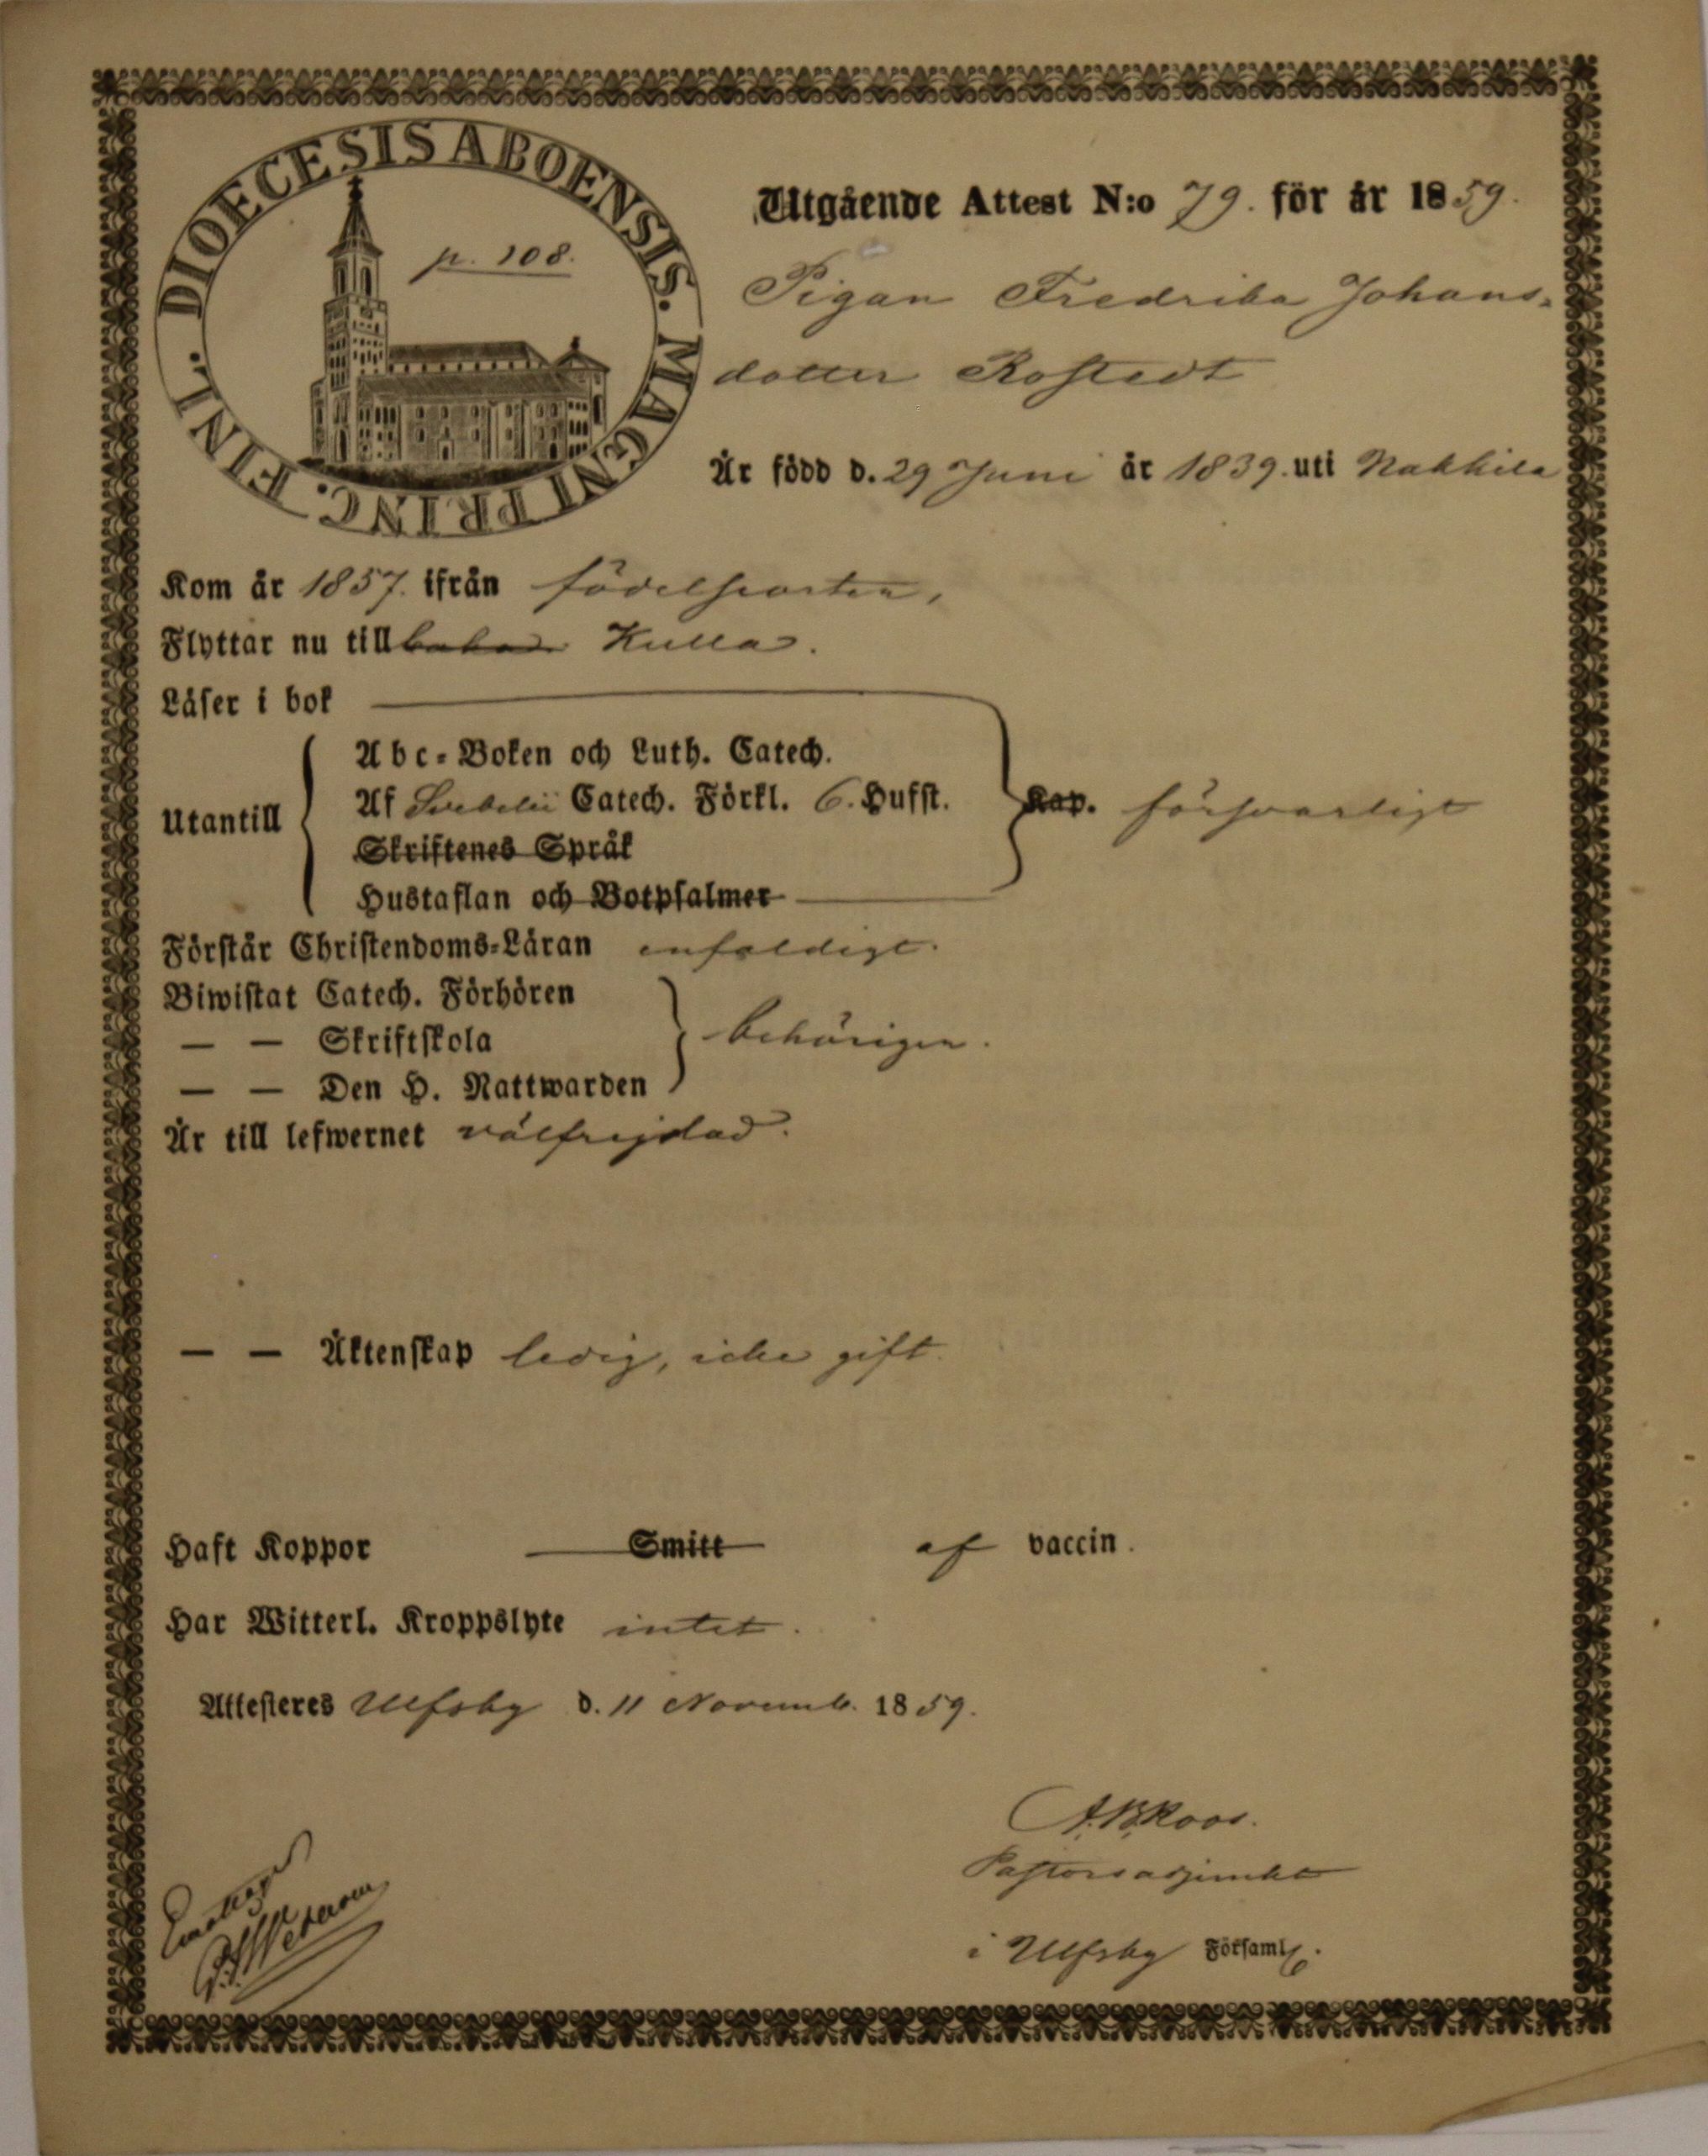 DIOECESIS ABOENSIS. MAGNI PRINC. FINL.
p. 108.
Utgående Attest N:o 79. för år 1859.
Pigan Fredrika Johans-
dotter Rostedt
Är född d. 29 Juni år 1839. uti Nakkila
Kom år 1857. ifrån födelseorten,
Flyttar nu till Kulla.
Läser i bok
Utantill
Abc-Boken och Luth. Catech.
Af Svebelii Catech. Förkl. 6. Hufst.
Skriftenes Språk
Hustaflan och Botpsalmer
Kap. försvarligt
Förstår Christendoms-Läran enfaldigt.
Biwistat Catech. Förhören
— — Skriftskola
— — Den H. Nattwarden
behörigen.
Är till lefwernet välfrejdad.
— — Äktenskap ledig, icke gift.
Haft Koppor Smitt af vaccin.
Har Witterl. Kroppslyte intet.
Attesteres Ulfsby d. 11 Novemb. 1859.
A. B. Roos.
Pastorsadjunkt
i Ulfsby Församlg.